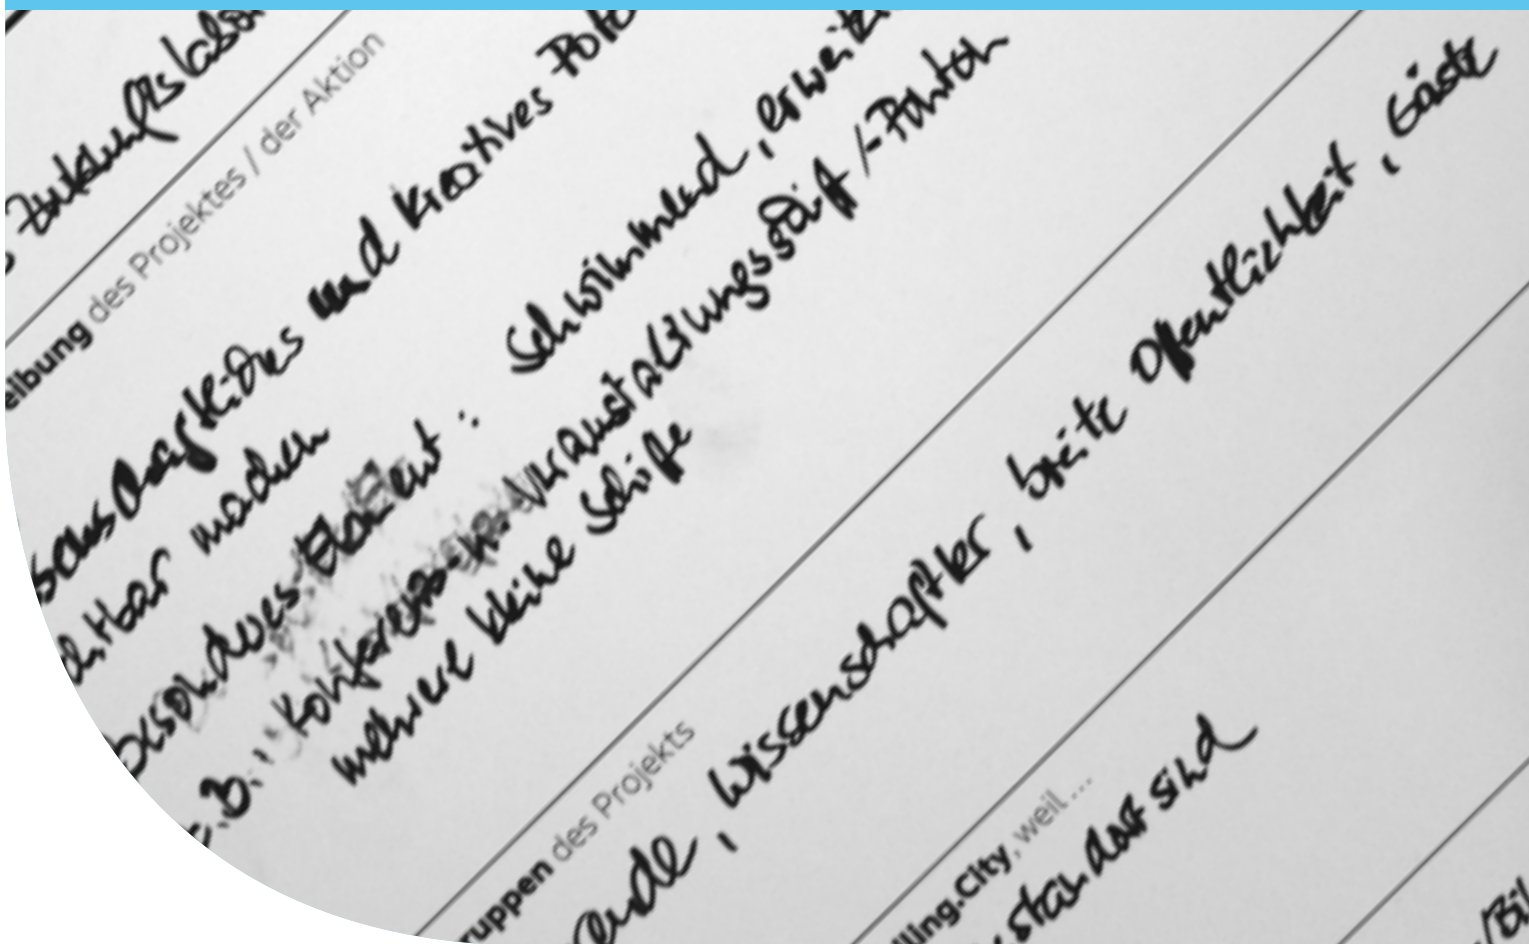 Zukunftslabor
eibung des Projektes / der Aktion
und kreatives
machen
Element : Schwimmend, erweit
.B.: Konferenz- Veranstaltungsschiff /-Ponton
mehrere kleine Schiffe
ruppen des Projekts
ende, Wissenschaftler, breite Öffentlichkeit, Gäste
lling.City, weil ...
dort sind
/Bil